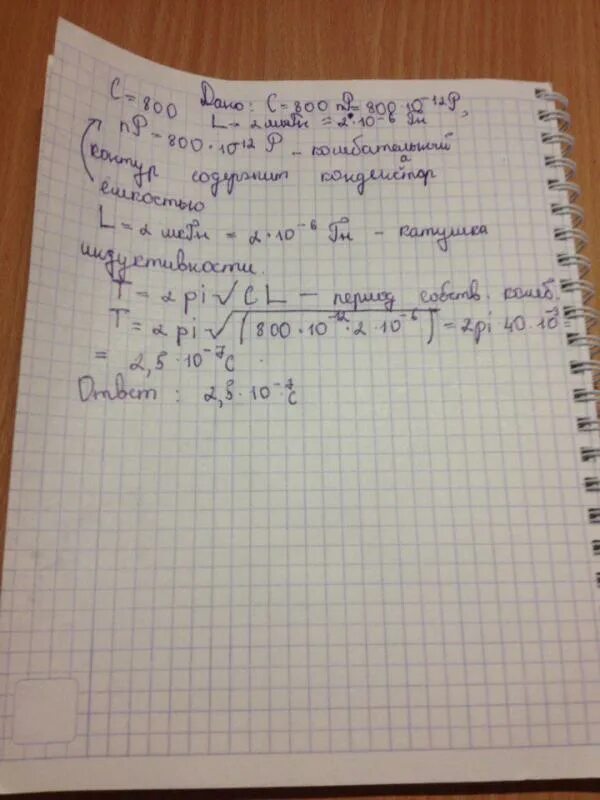 C = 800 Дано: C = 800 пР = 800 · 10⁻¹²Р,
L = 2 мкГн = 2 · 10⁻⁶ Гн
пР = 800 · 10⁻¹² Р – колебательный
контур содержит конденсатор
ёмкостью
L = 2 мкГн = 2 · 10⁻⁶ Гн – катушка
индуктивности.
T = 2 pi √ C L – период собств. колеб.
T = 2 pi √(800 · 10⁻¹² · 2 · 10⁻⁶) = 2pi 40 · 10⁻⁹ =
= 2,5 · 10⁻⁷ с
Ответ : 2,5 · 10⁻⁷ с